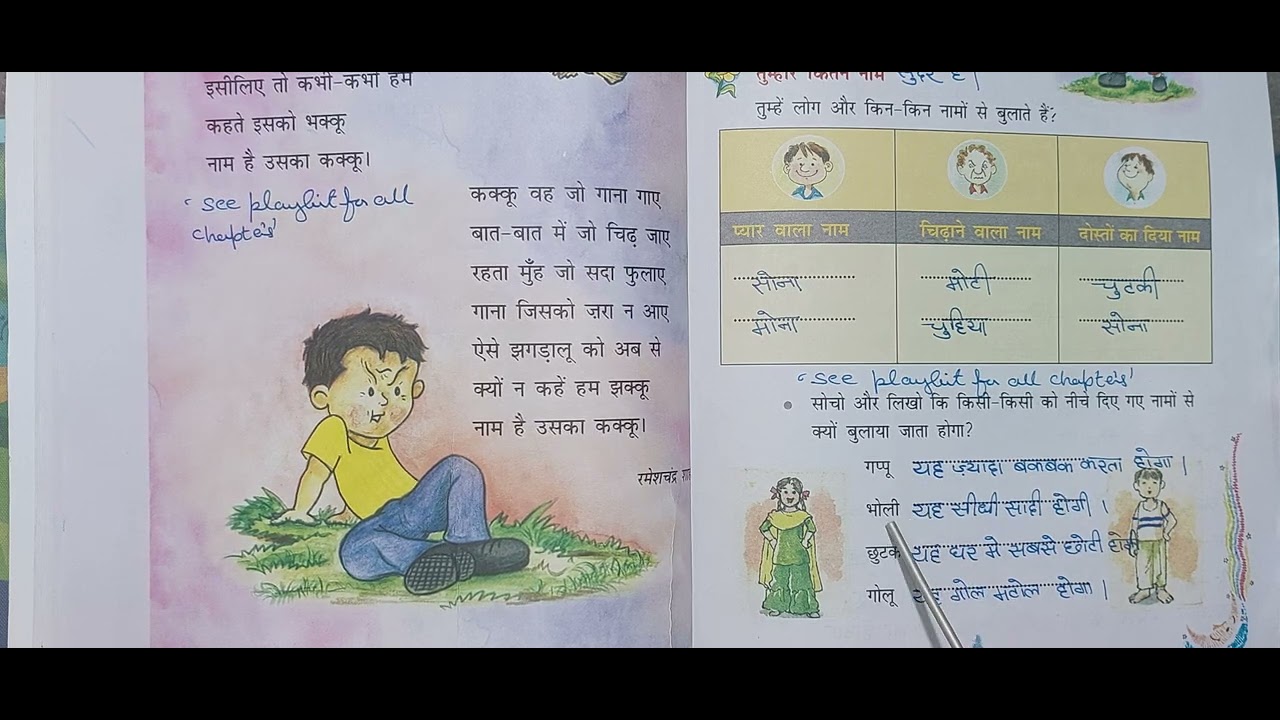 इसीलिए तो कभी-कभी हम
कहते इसको भक्कू
नाम है उसका कक्कू।
"see playlist for all
chapters"
कक्कू वह जो गाना गाए
बात-बात में जो चिढ़ जाए
रहता मुँह जो सदा फुलाए
गाना जिसको जरा न आए
ऐसे झगड़ालू को अब से
क्यों न कहें हम झक्कू
नाम है उसका कक्कू।
रमेशचंद्र
तुम्हारे कितने नाम सुंदर है।
तुम्हें लोग और किन-किन नामों से बुलाते हैं?
प्यार वाला नाम चिढ़ाने वाला नाम दोस्तों का दिया नाम
सोना मोटी चुटकी
मोना चुहिया सोना
"see playlist for all chapters"
• सोचो और लिखो कि किसी-किसी को नीचे दिए गए नामों से
क्यों बुलाया जाता होगा?
गप्पू यह ज़्यादा बकबक करता होगा।
भोली यह सीधी सादी होगी।
छुटक यह घर मे सबसे छोटी होगी
गोलू यह गोल मटोल होगा।